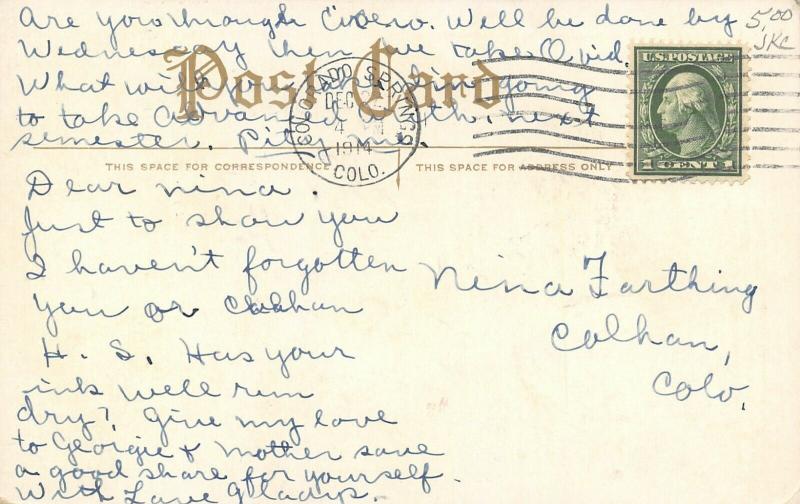 Are you through Cicero. Will be done by
Wednesday then we take Ovid.
What will you I'm going
to take Advanced Arith. next
semester. Pity me.
5,00
JKC
Post Card
COLORADO SPRINGS
DEC
4
1914
COLO.
U.S. POSTAGE
1 CENT 1
THIS SPACE FOR CORRESPONDENCE
THIS SPACE FOR ADDRESS ONLY
Dear Nina.
Just to show you
I haven't forgotten
you or Calhan
H. S. Has your
ink well run
dry? Give my love
to Georgie & Mother save
a good share for yourself.
With Love Gladys.
Nina Farthing
Calhan,
Colo.